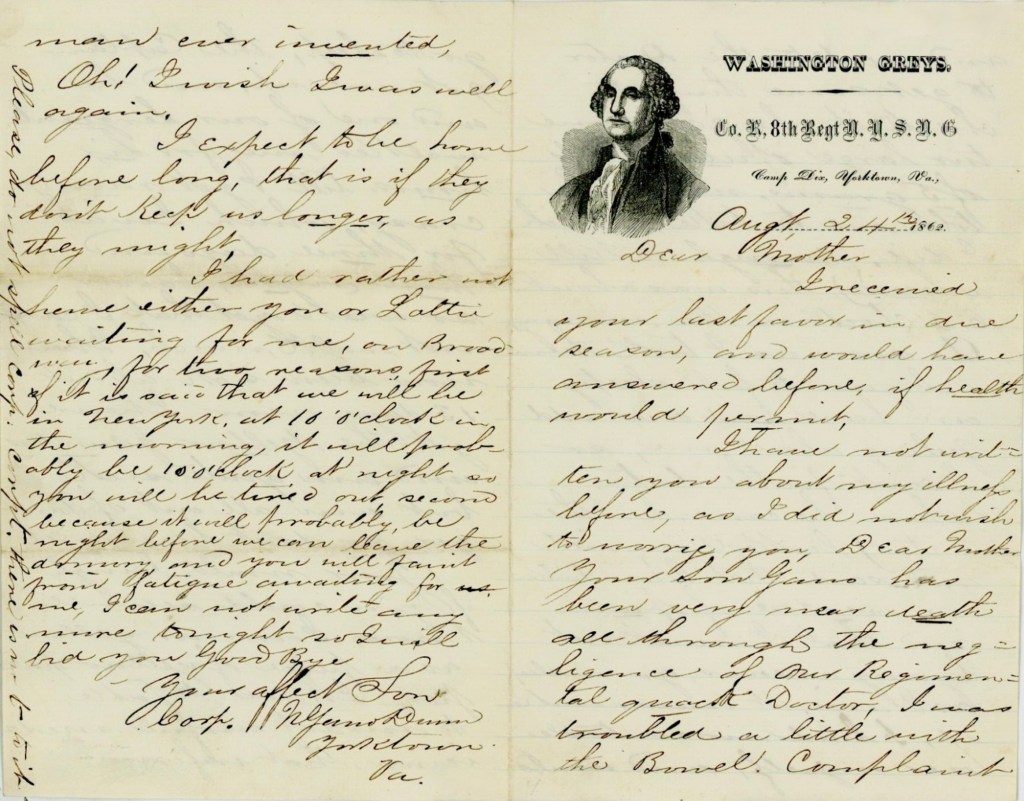 WASHINGTON GREYS.
Co. K. 8th Regt N. Y. S. N. G
Camp Dix, Yorktown, Va.,
Augt. 24th 1862.
Dear Mother
I received
your last favor in due
season, and would have
answered before, if health
would permit,
I have not writ=
ten you about my illness
before, as I did not wish
to worrie you, Dear Mother
Your Son Gano has
been very near death
all through the neg=
ligence of our Regimen=
tal quack Doctor, I was
troubled a little with
the Bowel. Complaint
man ever invented,
Oh! I wish I was well
again.
I expect to be home
before long, that is if they
don't keep us longer, as
they might,
I had rather not
have either you or Lottie
waiting for me, on Broad-
way, for two reasons, first
if it is said that we will be
in New York, at 10 o'clock in
the morning, it will prob-
ably be 10 o'clock at night so
you will be tired out, second
because it will probably, be
night before we can leave the
armory, and you will faint
from fatigue awaiting for us.
me, I can not write any
more tonight so I will
bid you Good Bye
Your affect Son
Corp. N Gano Dunn
Yorktown.
Va.
Please, do not spell Corp. Corpt. there is no t to it